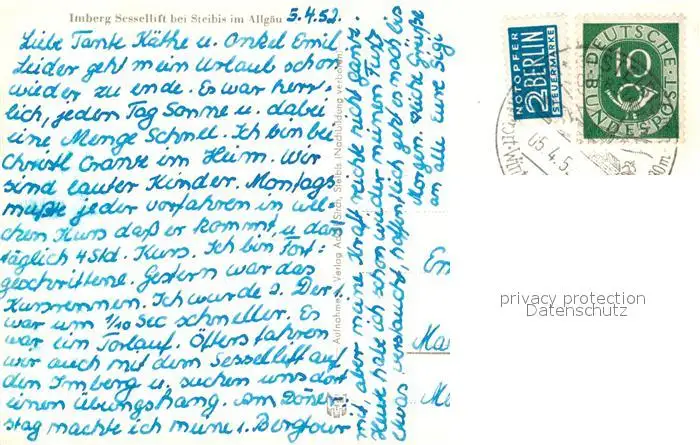 Imberg Sessellift bei Steibis im Allgäu
5.4.52.
Liebe Tante Käthe u. Onkel Emil
Leider geht mein Urlaub schon
wieder zu ende. Es war herr-
lich, jeden Tag Sonne u. dabei
eine Menge Schnee. Ich bin bei
Christl Cranz im Heim. Wir
sind lauter Kinder. Montags
mußte jeder vorfahren in wel-
chen Kurs daß er kommt, u. dan
täglich 4 Std. Kurs. Ich bin Fort-
geschrittene. Gestern war das
Kursrennen. Ich wurde 2. Der 1.
war um 1/10 Sec schneller. Es
war ein Torlauf. Öfters fahren
wir auch mit dem Sessellift auf
den Imberg u. suchen uns dort
einen Übungshang. Am Donners-
stag machte ich meine 1. Bergtour
mit, aber meine Kraft reichte nicht ganz.
Heute habe ich schon wieder meinen Fuß
etwas verstaucht, hoffentlich geht es noch bis
Morgen. Viele Grüße
an alle Eure Sigi
Aufnahme u. Verlag
Steibis (Nachbildung verboten)
NOTOPFER
2 BERLIN
STEUERMARKE
DEUTSCHE
BUNDESPOST
10
05.4.5
privacy protection
Datenschutz